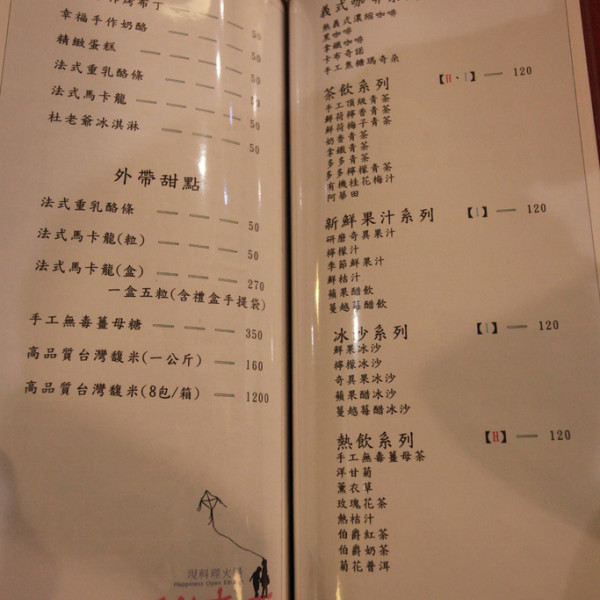 烤布丁
幸福手作奶酪 50
精緻蛋糕 50
法式重乳酪條 50
法式馬卡龍 50
杜老爺冰淇淋 50
外帶甜點
法式重乳酪條 50
法式馬卡龍(粒) 50
法式馬卡龍(盒) 270
一盒五粒(含禮盒手提袋)
手工無毒薑母糖 350
高品質台灣馥米(一公斤) 160
高品質台灣馥米(8包/箱) 1200
現料理
Happiness Open
義式咖啡
熱義式濃縮咖啡
黑咖啡
拿鐵咖啡
卡布奇諾
手工焦糖瑪奇朵
茶飲系列 【H·I】 120
手工頂級青茶
鮮荷檸香青茶
鮮荷梅子青茶
奶香青茶
拿鐵青茶
多多青茶
多多檸檬青茶
有機桂花梅汁
阿華田
新鮮果汁系列 【I】 120
研磨奇異果汁
檸檬汁
季節鮮果汁
鮮桔汁
蘋果醋飲
蔓越莓醋飲
冰沙系列 【I】 120
鮮果冰沙
檸檬冰沙
奇異果冰沙
蘋果醋冰沙
蔓越莓醋冰沙
熱飲系列 【H】 120
手工無毒薑母茶
洋甘菊
薰衣草
玫瑰花茶
熱桔汁
伯爵紅茶
伯爵奶茶
菊花普洱